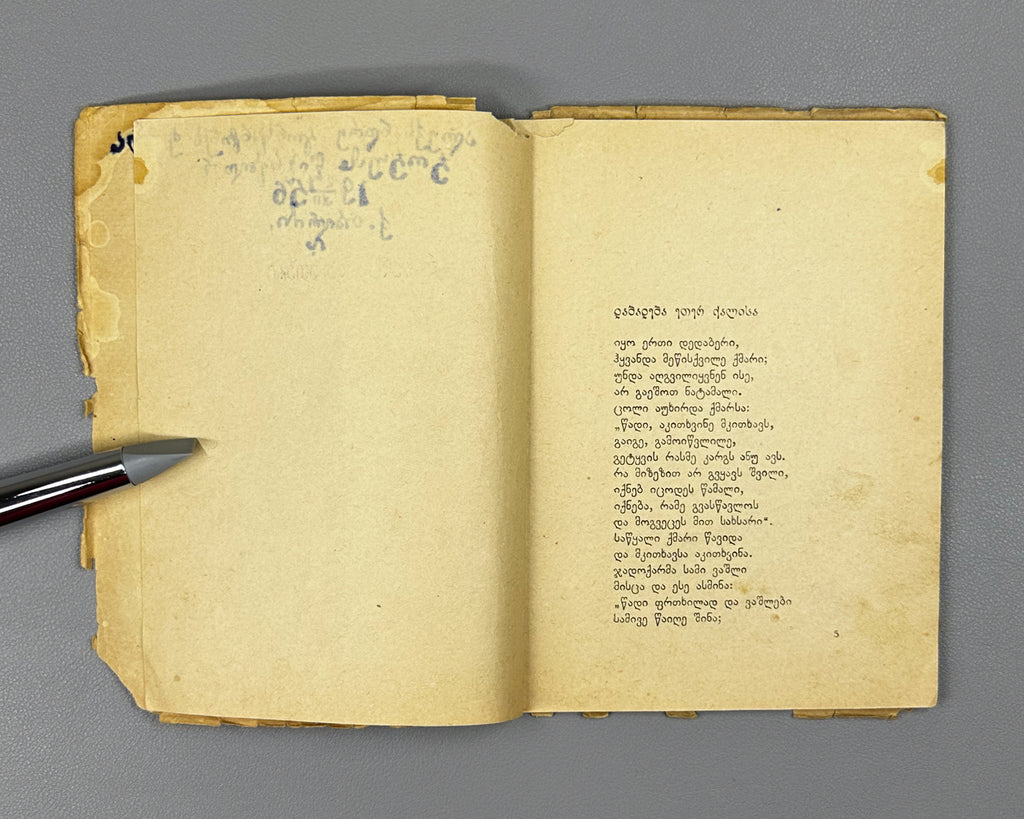 დაბადება ეთერ ქალისა
იყო ერთი დედაბერი,
ჰყვანდა მეწისქვილე ქმარი;
უნდა აღგვილიყვნენ ისე,
არ გაეშოთ ნატამალი.
ცოლი აუხირდა ქმარსა:
„წადი, აკითხვინე მკითხავს,
გაიგე, გამოიწვლილე,
გეტყვის რასმე კარგს ანუ ავს.
რა მიზეზით არ გვყავს შვილი,
იქნებ იცოდეს წამალი,
იქნება, რამე გვასწავლოს
და მოგვეცეს მით სახსარი“.
საწყალი ქმარი წავიდა
და მკითხავსა აკითხვინა.
ჯადოქარმა სამი ვაშლი
მისცა და ესე ასმინა:
„წადი ფრთხილად და ვაშლები
სამივე წაიღე შინა;
5